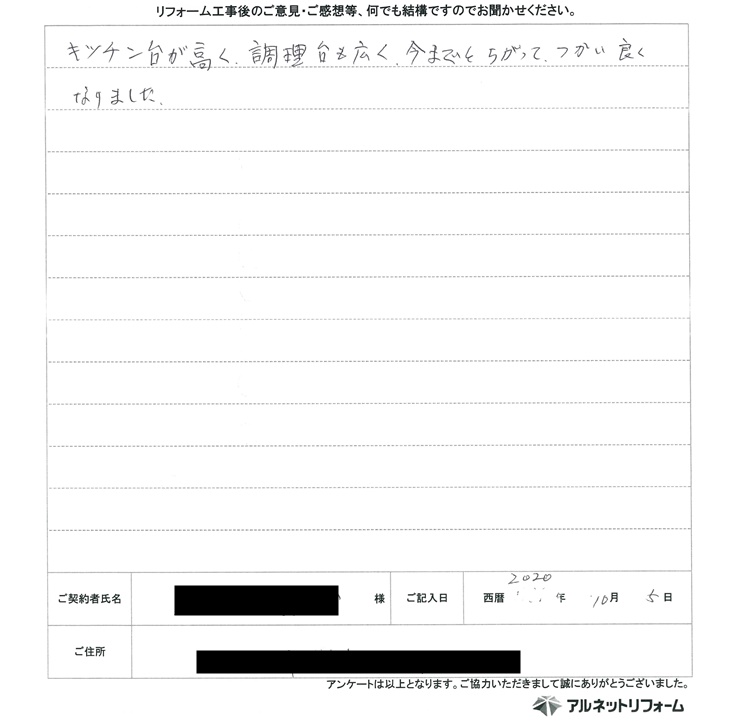 リフォーム工事後のご意見・ご感想等、何でも結構ですのでお聞かせください。
キッチン台が高く、調理台も広く、今までとちがって、つかい良く
なりました。
ご契約者氏名 様 ご記入日 西暦 2020 年 10月 5日
ご住所
アンケートは以上となります。ご協力いただきまして誠にありがとうございました。
アルネットリフォーム